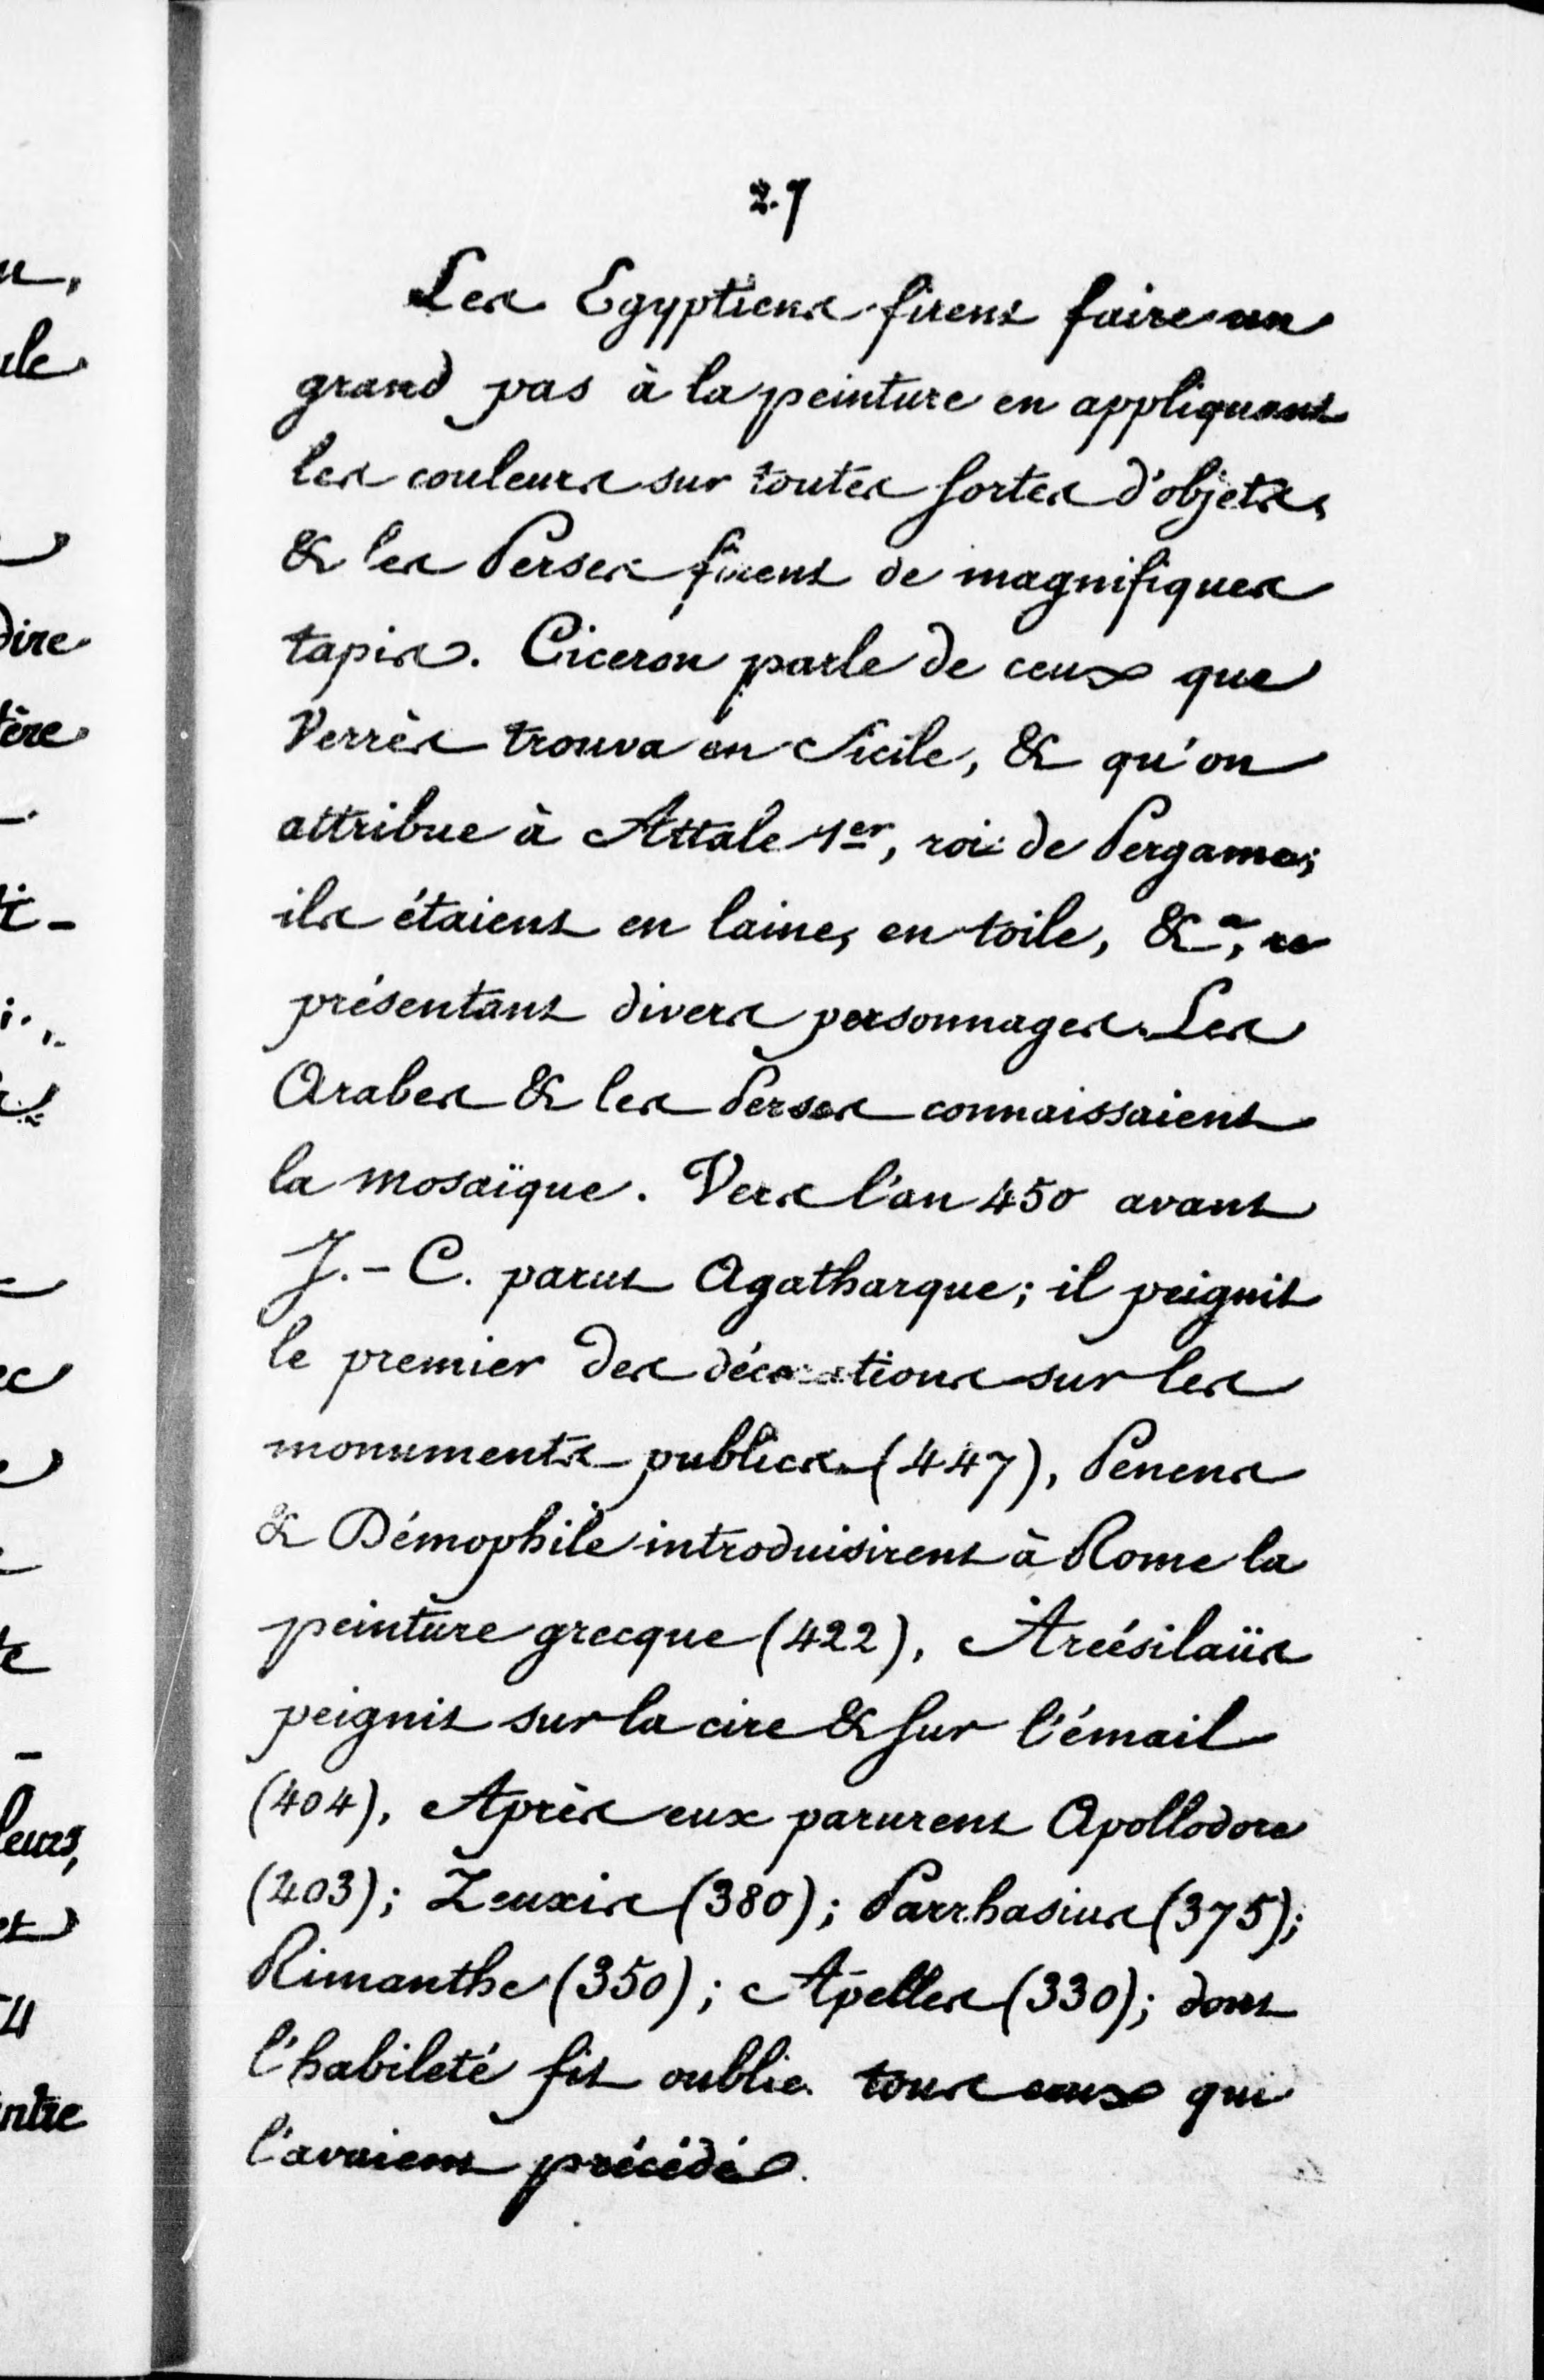 27
Les Egyptiens firent faire un
grand pas à la peinture en appliquant
les couleurs sur toutes sortes d'objets,
& les Perses firent de magnifiques
tapis. Ciceron parle de ceux que
Verrès trouva en Sicile, & qu'on
attribue à Attale 1er, roi de Pergame;
ils étaient en laine, en toile, &a, re
présentant divers personnages. Les
Arabes & les Perses connaissaient
la mosaïque. Vers l'an 450 avant
J.-C. parut Agatharque; il peignit
le premier des décorations sur les
monuments publics (447), Penens
& Démophile introduisirent à Rome la
peinture grecque (422), Arcésilaüs
peignit sur la cire & sur l'émail
(404), Après eux parurent Apollodore
(403); Zeuxis (380); Parrhasius (375);
Rimanthe (350); Apelles (330); dont
l'habileté fit oublier tous ceux qui
l'avaient précédé.